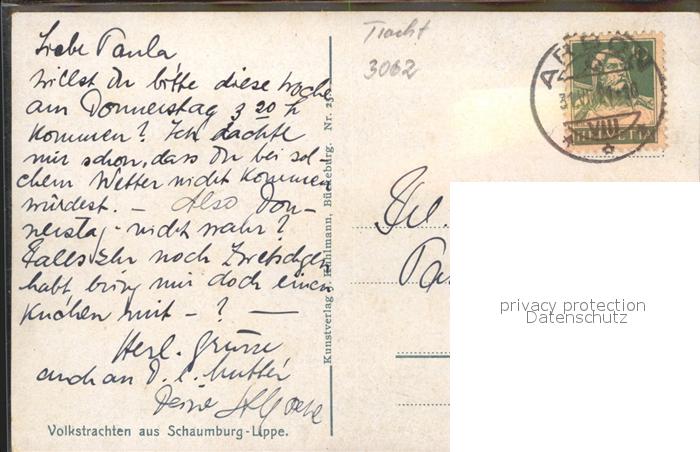 Liebe Paula
willst Du bitte diese Woche
am Donnerstag 3 20 h
kommen? Ich dachte
mir schon, dass Du bei sol-
chem Wetter nicht kommen
würdest. — Also Don-
nerstag - nicht wahr?
Falls Ihr noch Zwetschgen
habt bring mir doch einen
Kuchen mit - ? —
Herl. Grüsse
auch an D. l. Mutter
Deine
Volkstrachten aus Schaumburg-Lippe.
Kunstverlag J. Kuhlmann, Bückeburg. Nr. 25
Tracht
3062
HELVETIA
VIII
Frl.
privacy protection
Datenschutz